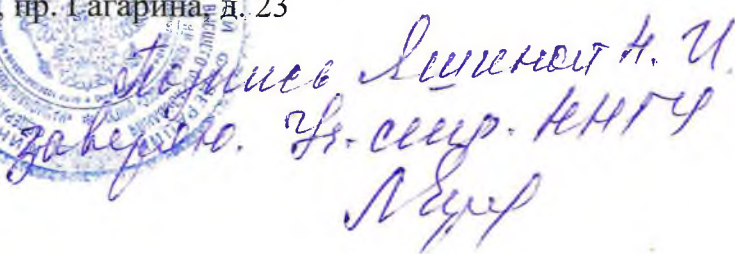 , пр. Гагарина, д. 23
Подпись Яшиной Н. И.
заверяю. Уч. секр. ННГУ